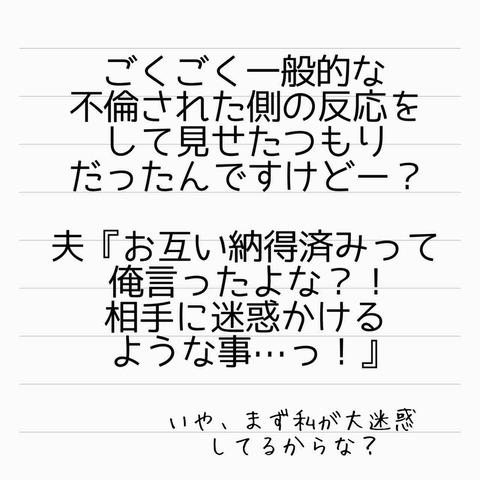 ごくごく一般的な
不倫された側の反応を
して見せたつもり
だったんですけどー？
夫『お互い納得済みって
俺言ったよな？！
相手に迷惑かける
ような事…っ！』
いや、まず私が大迷惑
してるからな？